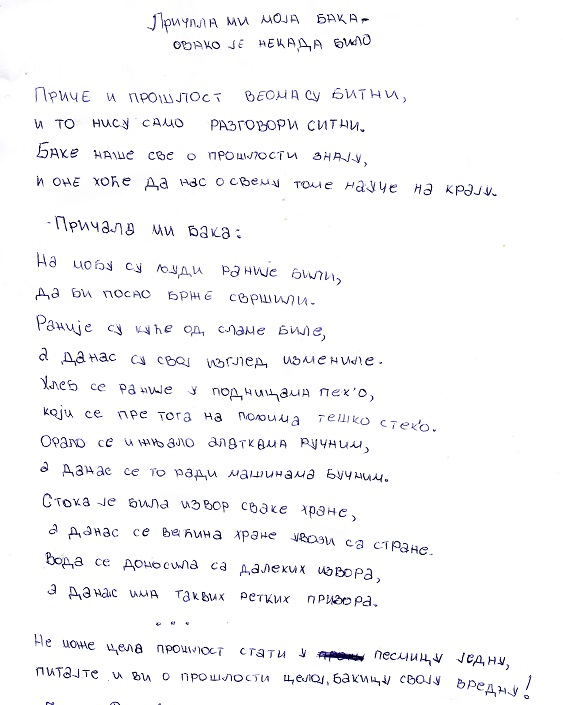 Причала ми моја бака -
овако је некада било
Приче и прошлост веома су битни,
и то нису само разговори ситни.
Баке наше све о прошлости знају,
и оне хоће да нас о свему томе науче на крају.
- Причала ми бака:
На мобу су људи раније били,
да би посао брже свршили.
Раније су куће од сламе биле,
а данас су свој изглед измениле.
Хлеб се раније у подницама пек'о,
који се пре тога на пољима тешко стек'о.
Орало се и жњало алаткама ручним,
а данас се то ради машинама бучним.
Стока је била извор сваке хране,
а данас се већина хране увози са стране.
Вода се доносила са далеких извора,
а данас има таквих ретких призора.
...
Не може цела прошлост стати у песмицу једну,
питајте и ви о прошлости целој, бакицу своју вредну!